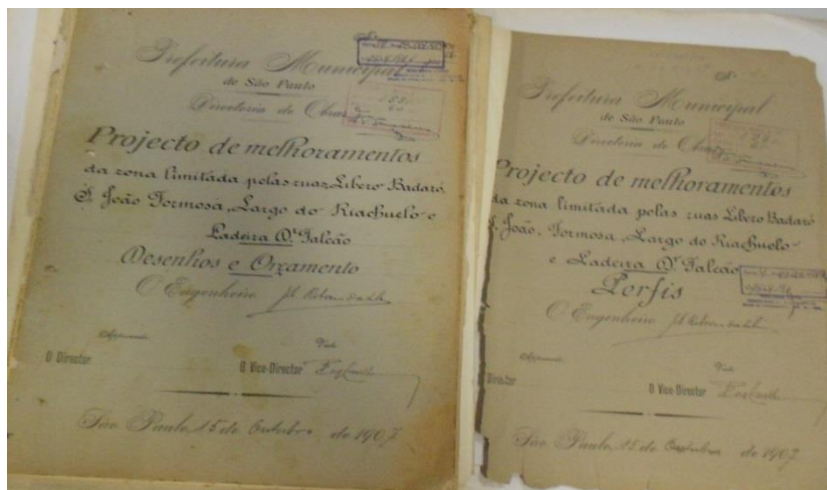 Prefeitura Municipal
de São Paulo
Directoria de Obras
Projecto de melhoramentos
da zona limitada pelas ruas Libero Badaró,
S. João Formosa, Largo do Riachuelo e
Ladeira Dr. Falcão
Desenhos e Orçamento
O Engenheiro
Approvado
Visto
O Director
O Vice-Director
São Paulo, 15 de Outubro de 1907
Prefeitura Municipal
de São Paulo
Directoria de Obras
Projecto de melhoramentos
da zona limitada pelas ruas Libero Badaró
S. João, Formosa, Largo do Riachuelo
e Ladeira Dr. Falcão
Perfis
O Engenheiro
Visto
Director
O Vice-Director
São Paulo, 15 de Outubro de 1907